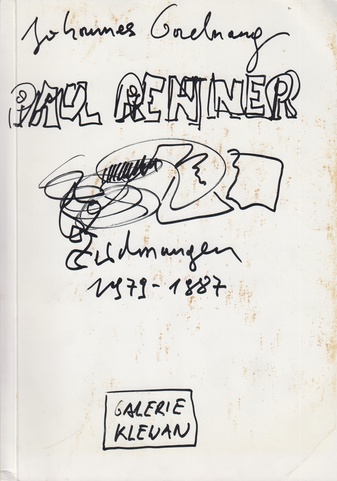 Johannes Gachnang
PAUL RENNER
Zeichnungen
1979-1987
GALERIE
KLEWAN